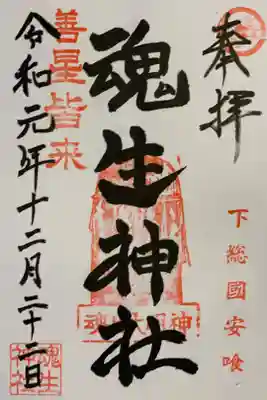 奉拝
下総國安喰
魂生神社
善星皆来
令和元年十二月二十二日
魂生神社